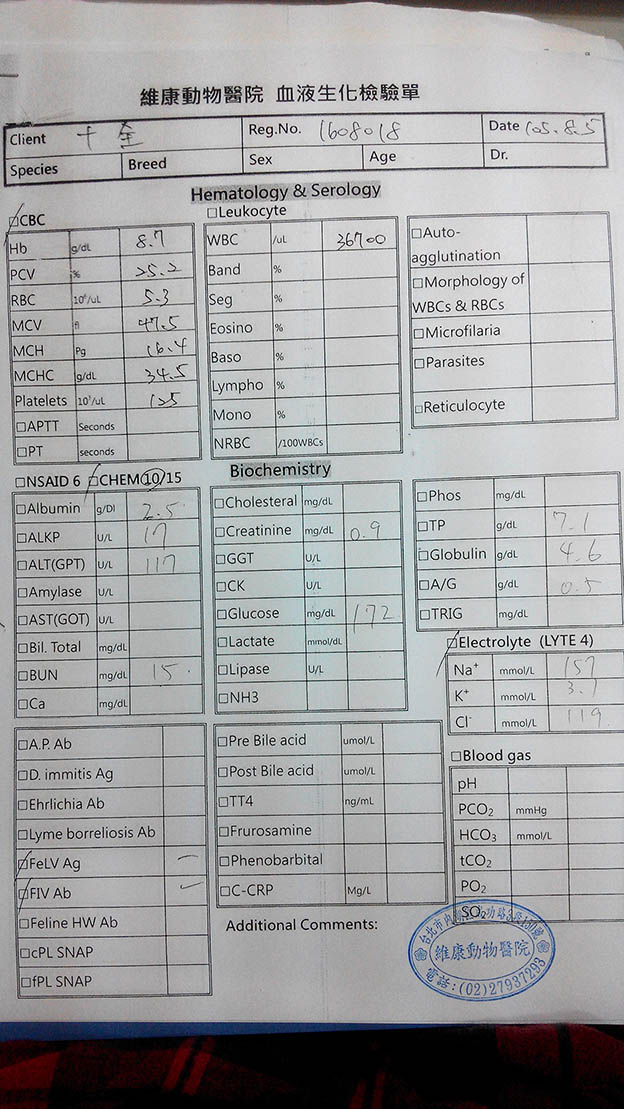 維康動物醫院 血液生化檢驗單
Client 千金 Reg.No. 1608018 Date 105.8.5
Species Breed Sex Age Dr.
Hematology & Serology
□CBC
Hb g/dL 8.7
PCV % 25.2
RBC 10⁶/uL 5.3
MCV fl 47.5
MCH Pg 16.4
MCHC g/dL 34.5
Platelets 10³/uL 125
□APTT Seconds
□PT seconds
□Leukocyte
WBC /uL 36700
Band %
Seg %
Eosino %
Baso %
Lympho %
Mono %
NRBC /100WBCs
□Auto-
agglutination
□Morphology of
WBCs & RBCs
□Microfilaria
□Parasites
□Reticulocyte
□NSAID 6 □CHEM 10/15
Biochemistry
□Albumin g/Dl 2.5
□ALKP U/L 17
□ALT(GPT) U/L 117
□Amylase U/L
□AST(GOT) U/L
□Bil. Total mg/dL
□BUN mg/dL 15.
□Ca mg/dL
□Cholesteral mg/dL
□Creatinine mg/dL 0.9
□GGT U/L
□CK U/L
□Glucose mg/dL 172
□Lactate mmol/dL
□Lipase U/L
□NH3
□Phos mg/dL
□TP g/dL 7.1
□Globulin g/dL 4.6
□A/G g/dL 0.5
□TRIG mg/dL
□Electrolyte (LYTE 4)
Na⁺ mmol/L 157
K⁺ mmol/L 3.1
Cl⁻ mmol/L 119
□A.P. Ab
□D. immitis Ag
□Ehrlichia Ab
□Lyme borreliosis Ab
□FeLV Ag −
□FIV Ab −
□Feline HW Ab
□cPL SNAP
□fPL SNAP
□Pre Bile acid umol/L
□Post Bile acid umol/L
□TT4 ng/mL
□Frurosamine
□Phenobarbital
□C-CRP Mg/L
Additional Comments:
□Blood gas
pH
PCO₂ mmHg
HCO₃ mmol/L
tCO₂
PO₂
SO₂
維康動物醫院
電話:(02)27937293